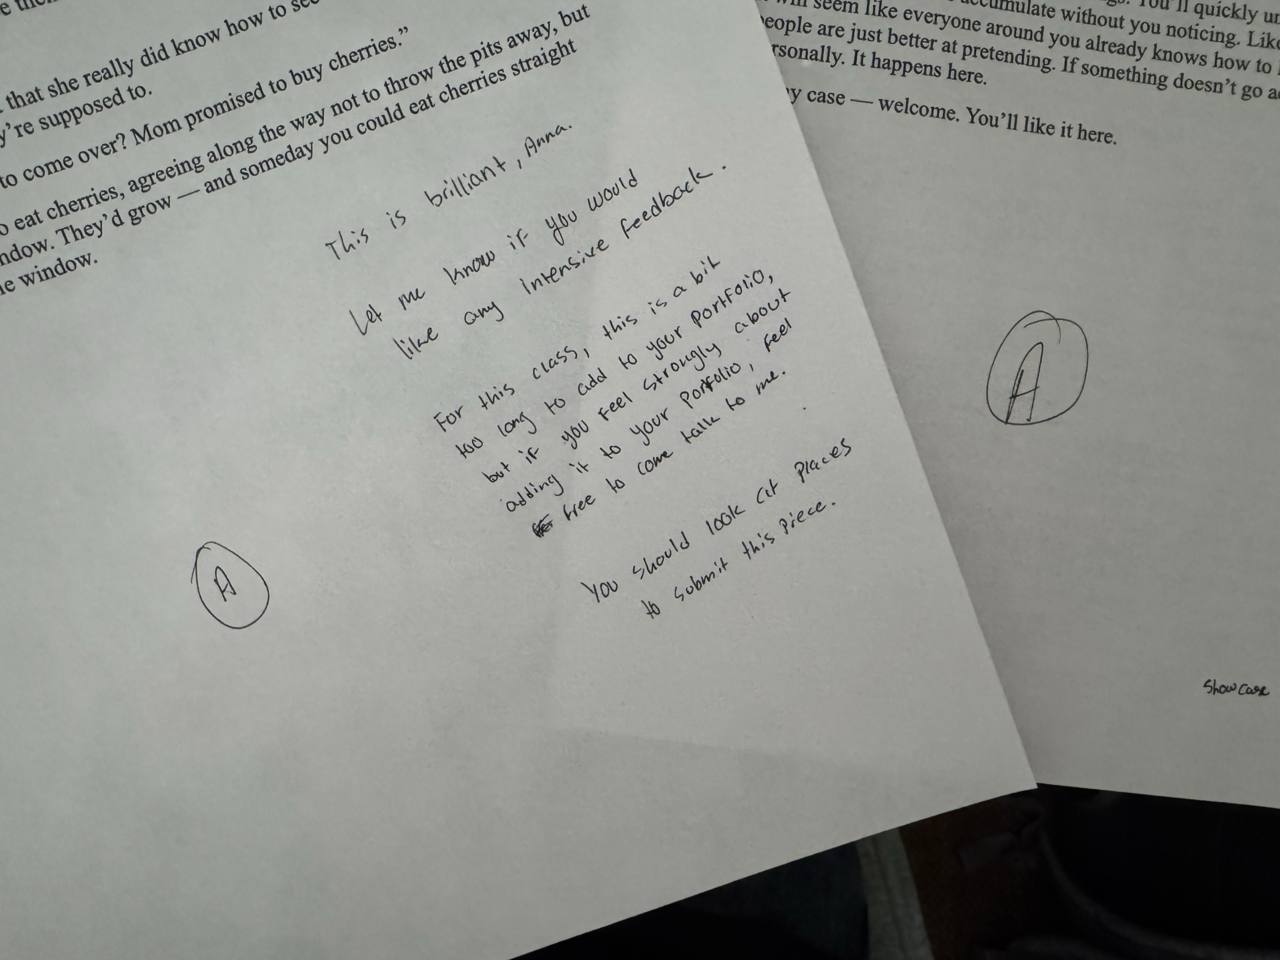 that she really did know how to see
y're supposed to.
to come over? Mom promised to buy cherries.”
o eat cherries, agreeing along the way not to throw the pits away, but
ndow. They'd grow — and someday you could eat cherries straight
e window.
This is brilliant, Anna.
Let me know if you would
like any intensive feedback.
For this class, this is a bit
too long to add to your portfolio,
but if you feel strongly about
adding it to your portfolio, feel
free to come talk to me.
You should look at places
to submit this piece.
A
You'll quickly
accumulate without you noticing. Like
will seem like everyone around you already knows how to
eople are just better at pretending. If something doesn't go
rsonally. It happens here.
y case — welcome. You'll like it here.
A
Showcase